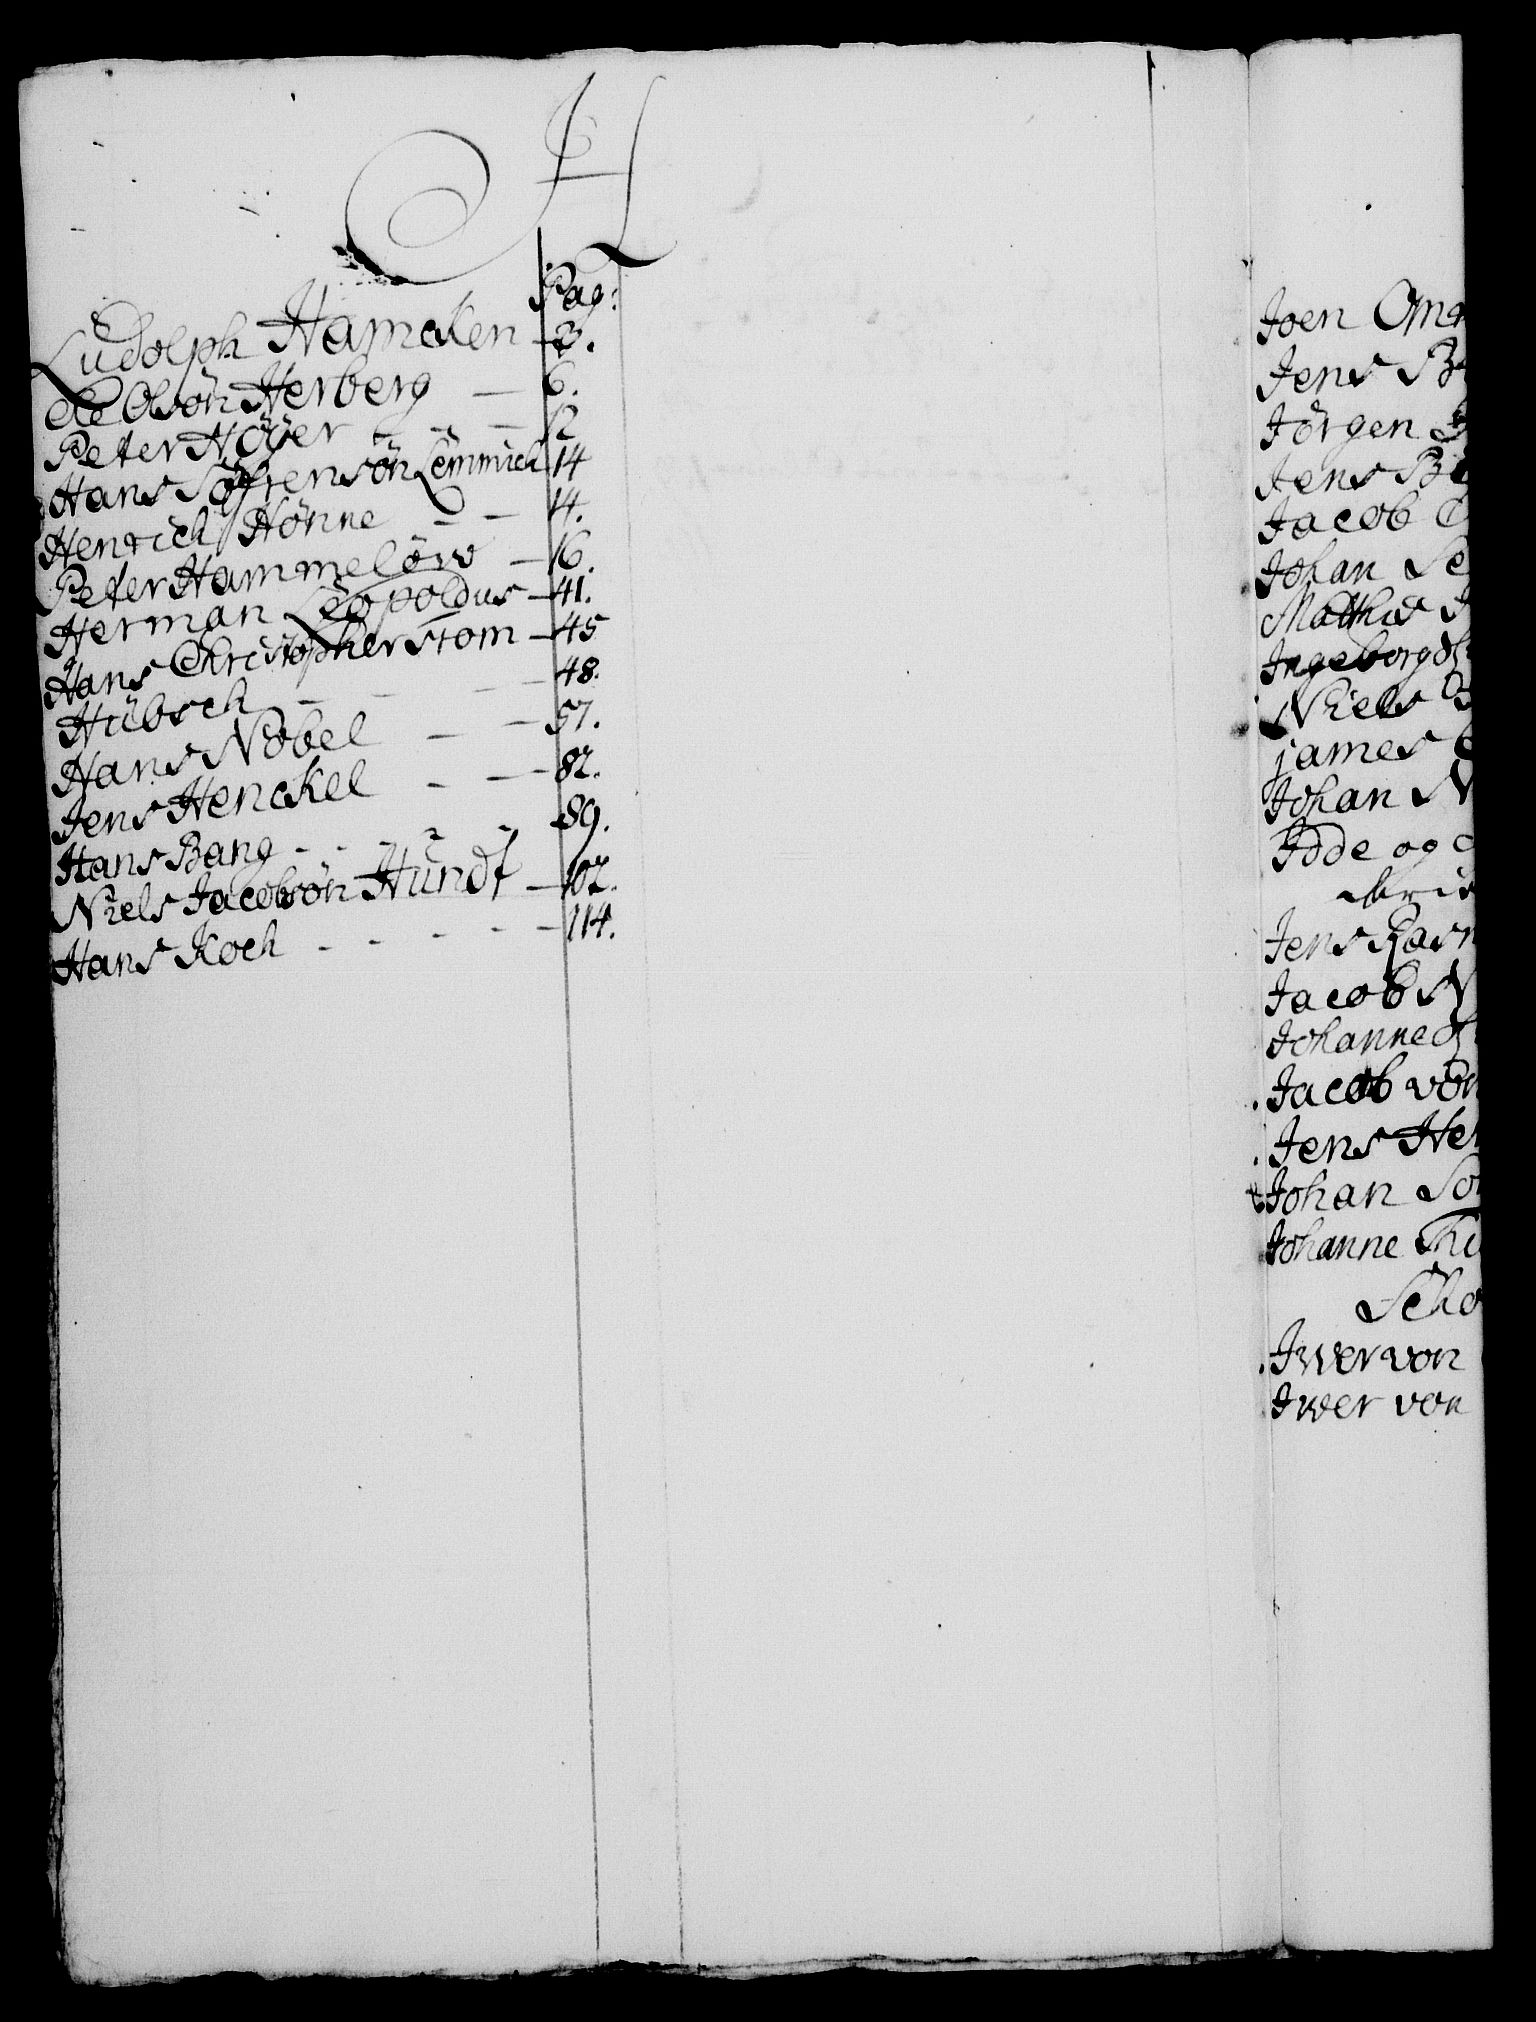 H
Pag:
Ludolph Hamcken - 3.
Ole Olsön Herberg - 6.
Peter Höyer - - - 12
Hans Söfrensön Lemmich 14
Henrich Hönne - - 14.
Peter Hammelöw - 16.
Herman Leopoldus - 41.
Hans Christopher Stom - 45
Hübsch - - - - 48.
Hans Nobel - - 57.
Jens Henckel - - 82.
Hans Bang - - - - - 89.
Niels Jacobsön Hundt - 102.
Hans Koch - - - - - 114.
Joen
Jens
Jörgen
Jens
Jacob
Johan
Mathis
Ingeborg
Niels
james
Johan
Jode og
Jens Rasm
Jacob
Johanne
Jacob von
Jens Hen
Johan
Johanne
Scho
Iwer von
Iwer von